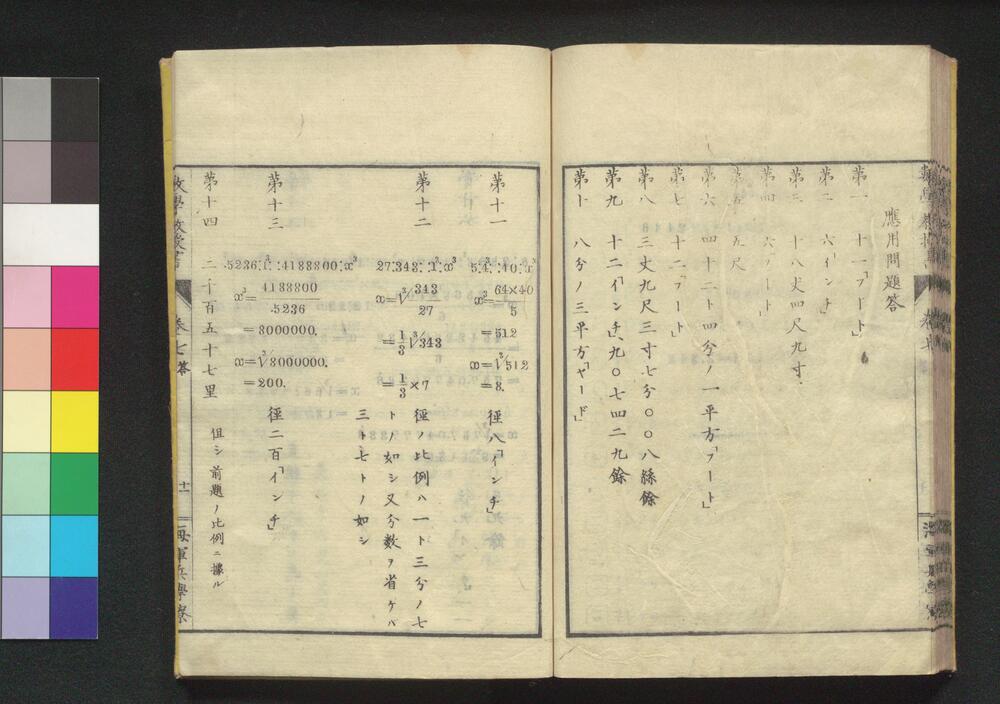 應用問題答
第一 十一「フート」
第二 六「インチ」
第三 十八丈四尺九寸
第四 六「フート」
第五 五尺
第六 四十二ト四分ノ一平方「フート」
第七 十二「フート」
第八 三丈九尺三寸七分〇〇八絲餘
第九 十二「インチ」九〇七四二九餘
第十 八分ノ三平方「ヤード」
第十一 5:4³::40:x³
x³=64×40/5
=512
x=∛512
=8.
徑八「インチ」
第十二 27:343::1³:x³
x=∛343/27
=1/3∛343
=1/3×7
徑ノ比例ハ一ト三分ノ七
トノ如シ又分數ヲ省ケバ
三ト七トノ如シ
第十三 .5236:1³::4188800:x³
x³=4188800/.5236
=8000000.
x=∛8000000.
=200.
徑二百「インチ」
第十四 二千百五十七里 但シ前題ノ比例ニ據ル
數學教授書 卷七答 十一 海軍兵學寮